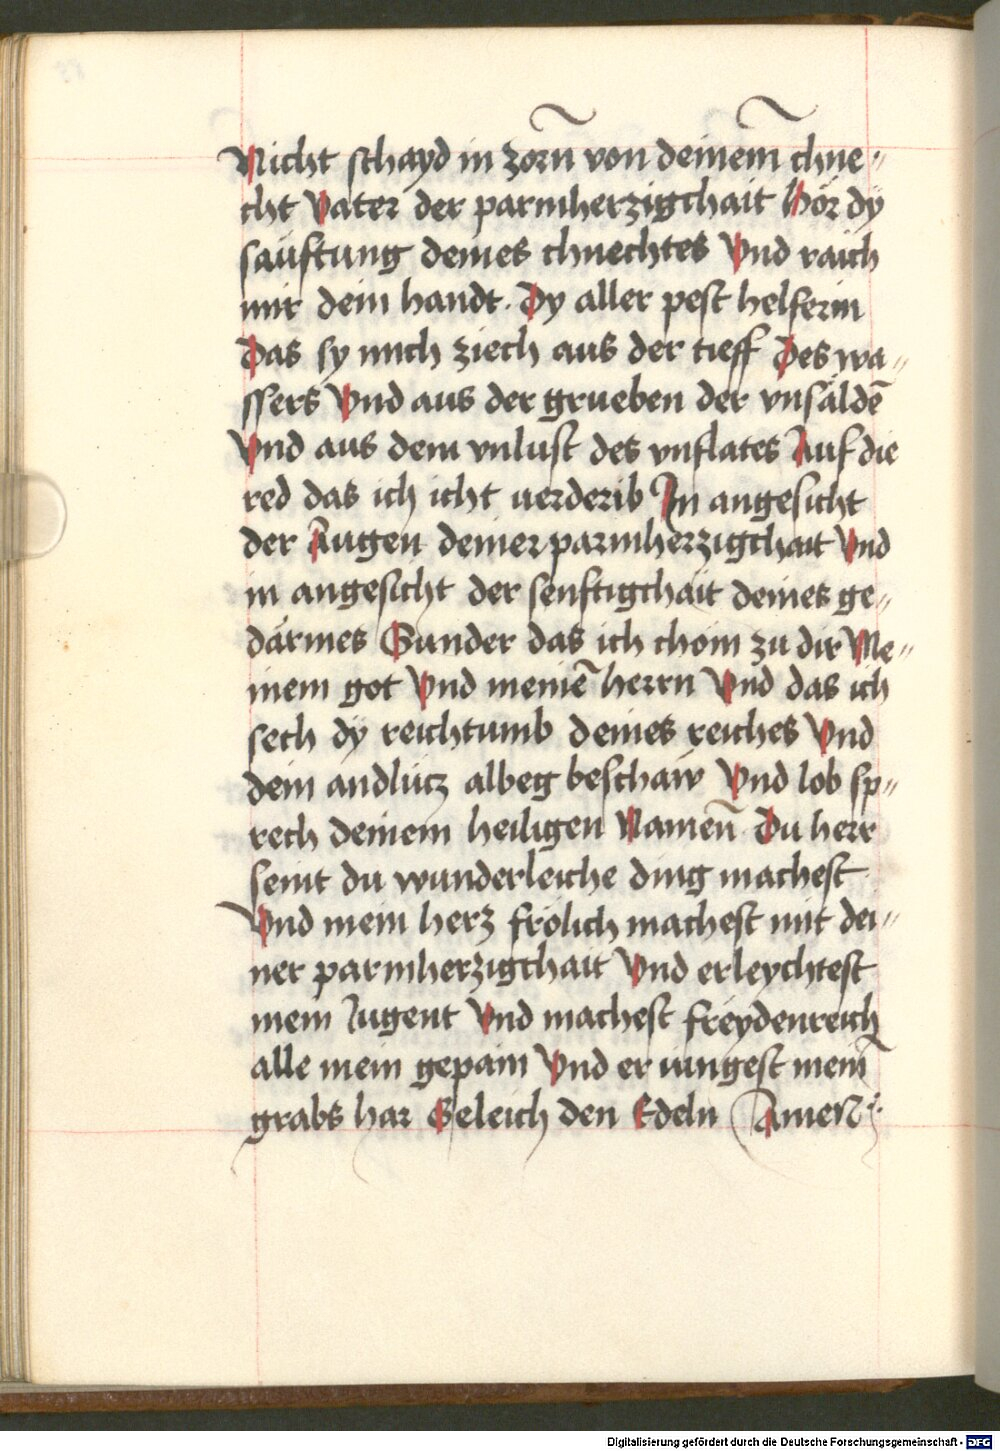 Nicht schayd in zorn̄ von deinem̄ chne„
cht Vater der parmherzigchait Hör dÿ
säuftung deines chnechtes Vnd raich
mir dein handt. Dy aller pest helferin
Das sy mich ziech aus der tieff Des wa„
ssers Vnd aus der grueben der vnsäldē
Vnd aus dem vnlust des vnflates Auf die
red das ich icht uerderib In angesicht
der Augen deiner parmherzigchait Vnd
in angesicht der senftigchait deines ge„
därmes Sunder das ich chöm zu dir Me„
inem got Vnd meinē herrn Vnd das ich
sech dÿ reichtumb deines reiches Vnd
dein andlücz albeg beschaw Vnd lob sp„
rech deinem heiligen Namen̄ Du herr
seint du wunderleiche ding machest
Vnd mein herz frölich machest mit dei„
ner parmherzigchait Vnd erleychtest
mein Jugent Vnd machest freydenreich
alle mein gepain Vnd er iungest mein̄
grabs har Geleich den Edeln Amen
Digitalisierung gefördert durch die Deutsche Forschungsgemeinschaft - DFG